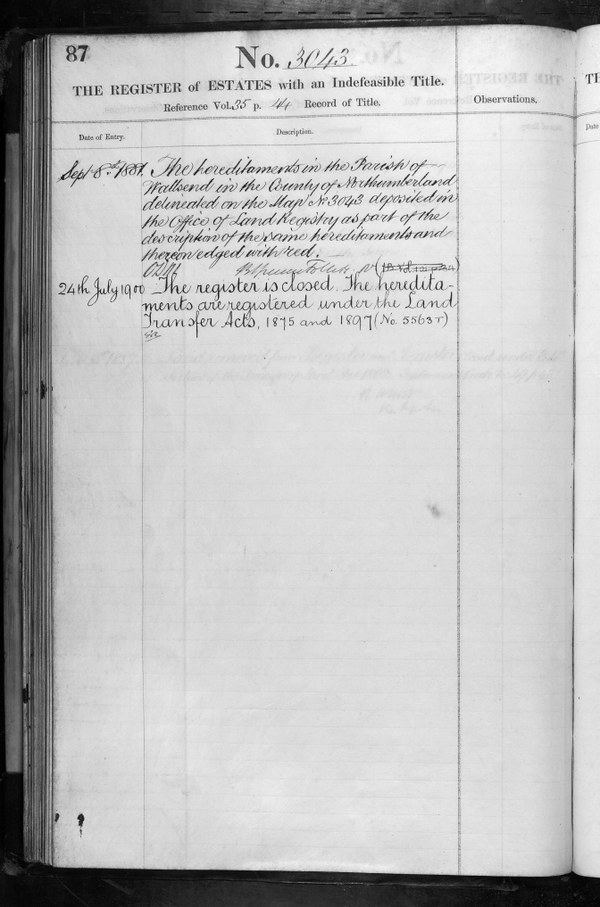 87
No. 3043
THE REGISTER of ESTATES with an Indefeasible Title.
Reference Vol. 35 p. 44 Record of Title.
Observations.
Date of Entry.
Description.
Sept 8th 1881. The hereditaments in the Parish of
Wallsend in the County of Northumberland
delineated on the Map No 3043 deposited in
the Office of Land Registry as part of the
description of the same hereditaments and
thereon edged with red.
24th July 1900 The register is closed. The heredita-
ments are registered under the Land
Transfer Acts, 1875 and 1897 (No. 5563T)
TH
Date